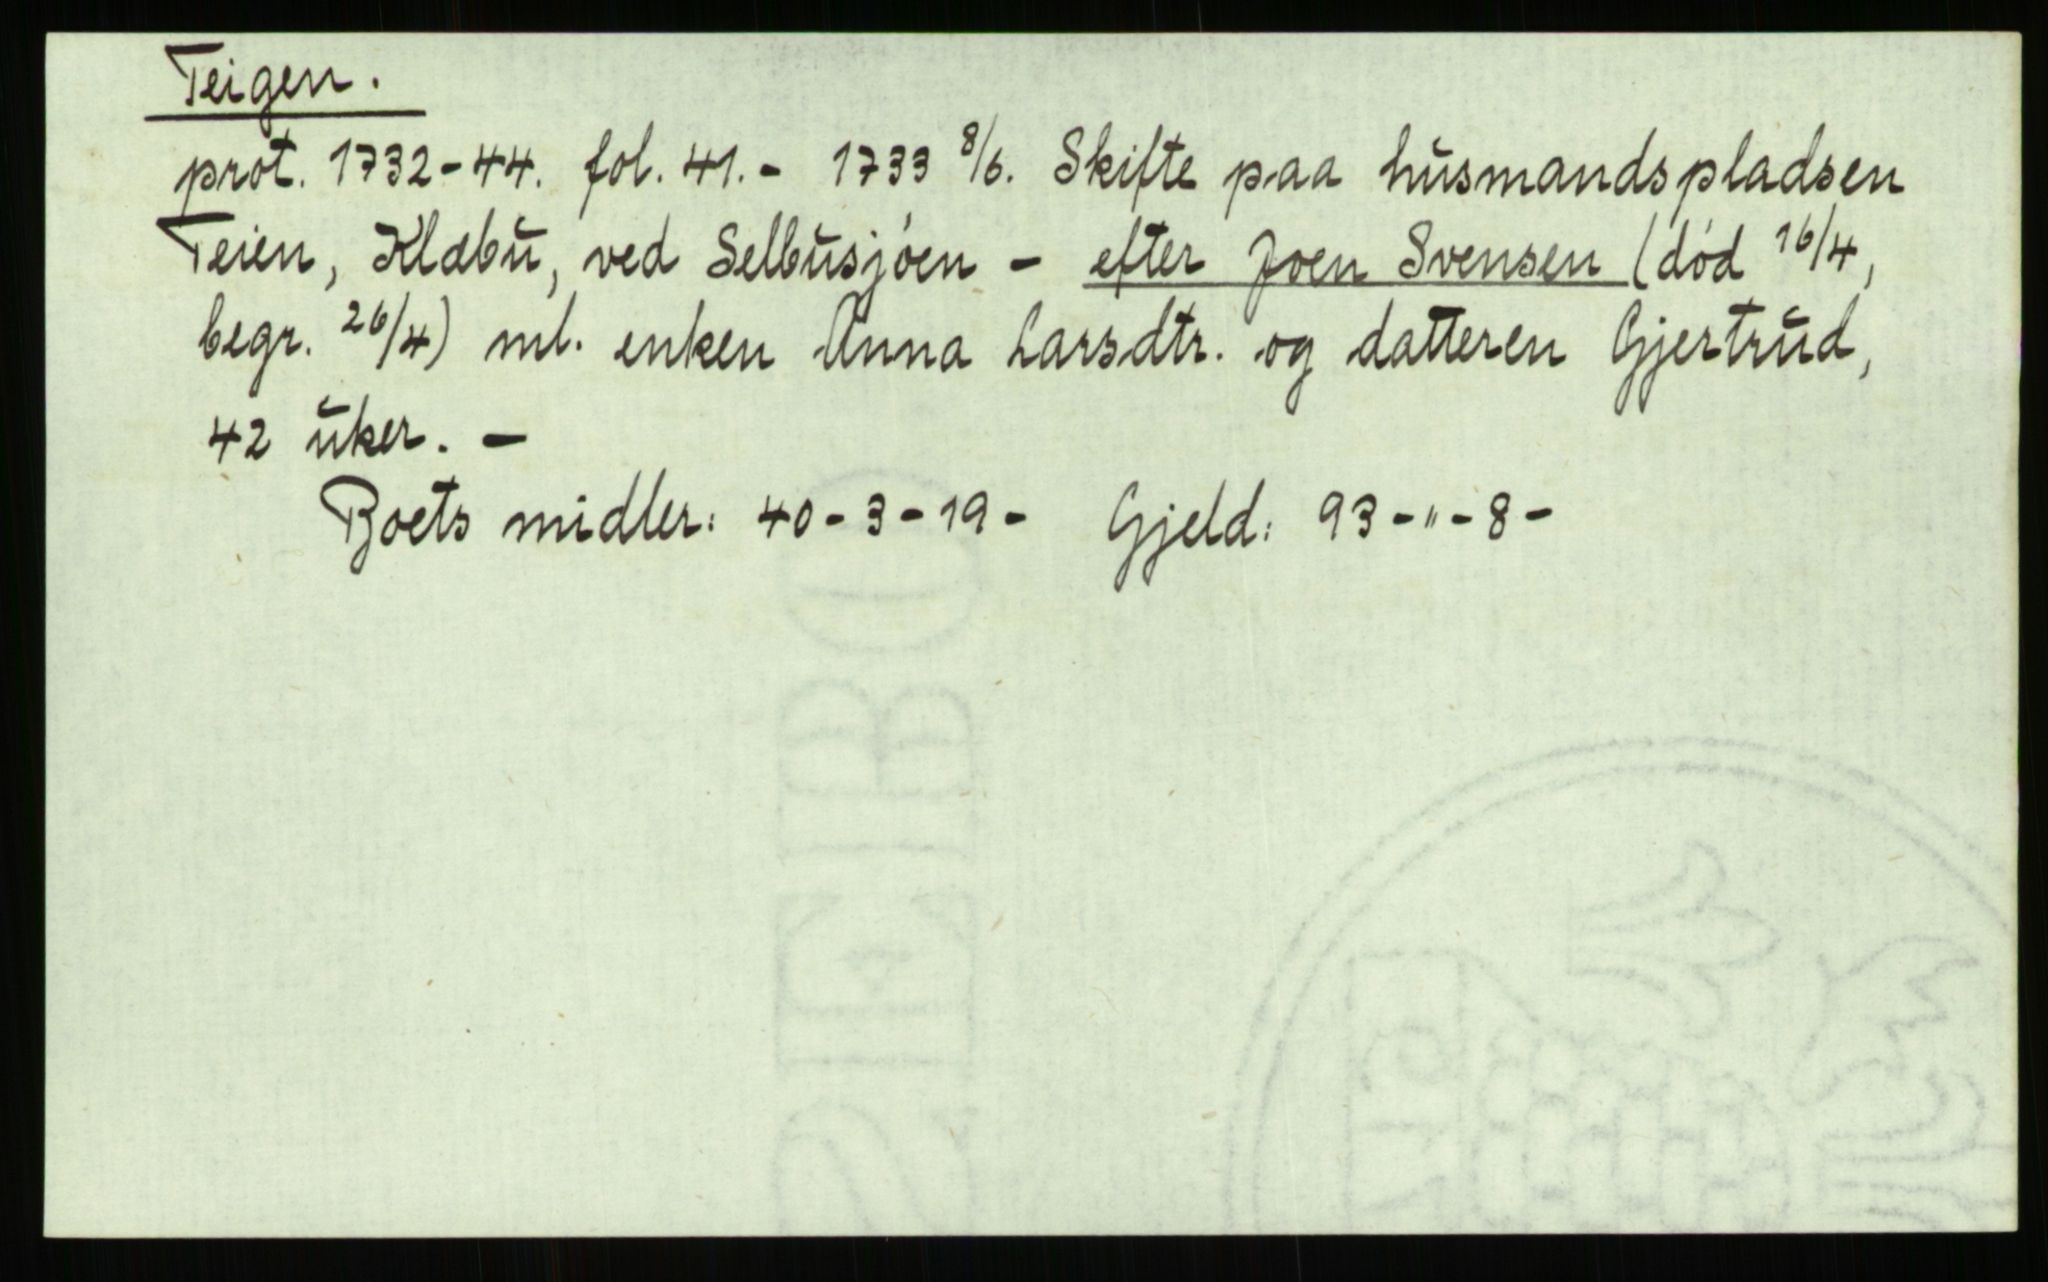 Teigen.
prot. 1732-44. fol. 41. - 1733 8/6. Skifte paa husmandspladsen
Teien, Klæbu, ved Selbusjøen - efter Joen Svensen (død 16/4,
begr. 26/4) ml. enken Anna Larsdtr. og datteren Gjertrud,
42 uker. -
Boets midler: 40-3-19- Gjeld: 93-"-8-